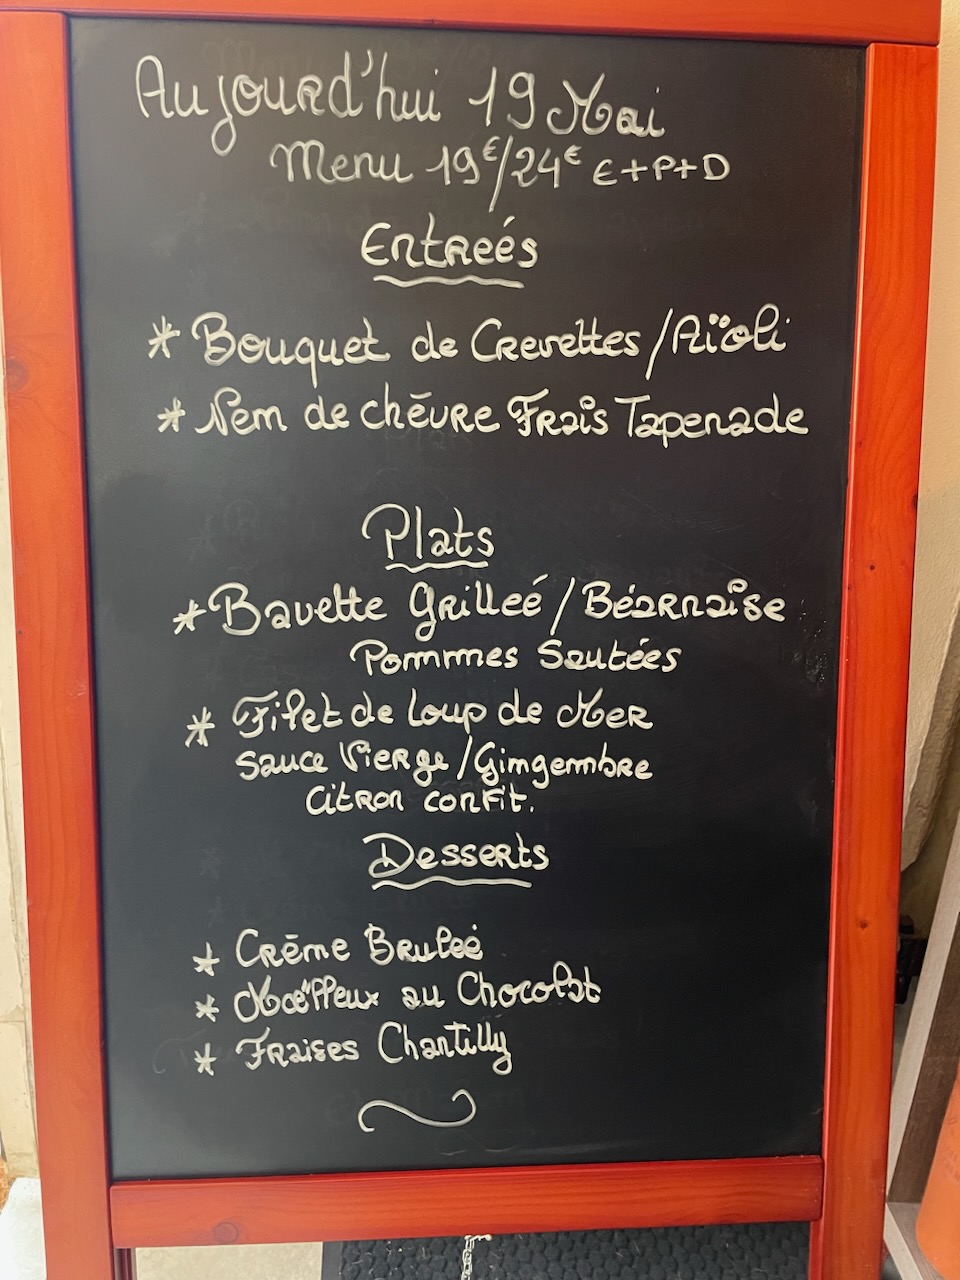 Aujourd'hui 19 Mai
Menu 19€/24€ E+P+D
Entreés
* Bouquet de Crevettes/Aïoli
* Nem de chēvre Frais Tapenade
Plats
* Bavette Grilleé/Béarnaise
Pommes Sautées
* Filet de Loup de Mer
Sauce Vierge/Gimgermbre
Citron confit.
Desserts
* Crēme Bruleé
* Mœ̈lleux au Chocolat
* Fraises Chantilly